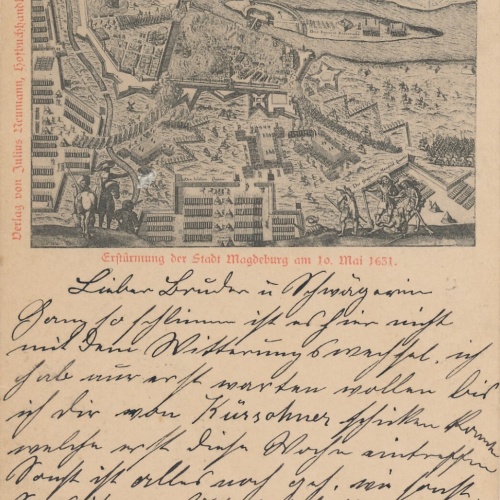 Verlag von Julius Neumann, Hofbuchhandl
Erstürmung der Stadt Magdeburg am 10. Mai 1631.
Lieber Bruder u Schwägerin
Ganz so schlimm ist es hier nicht
mit dem Witterungswechsel. ich
hab nur erst warten wollen bis
ich dir von Kürschner schicken konnte
welche erst diese Woche eintreffen
Sonst ist alles noch ges. wie sonst.